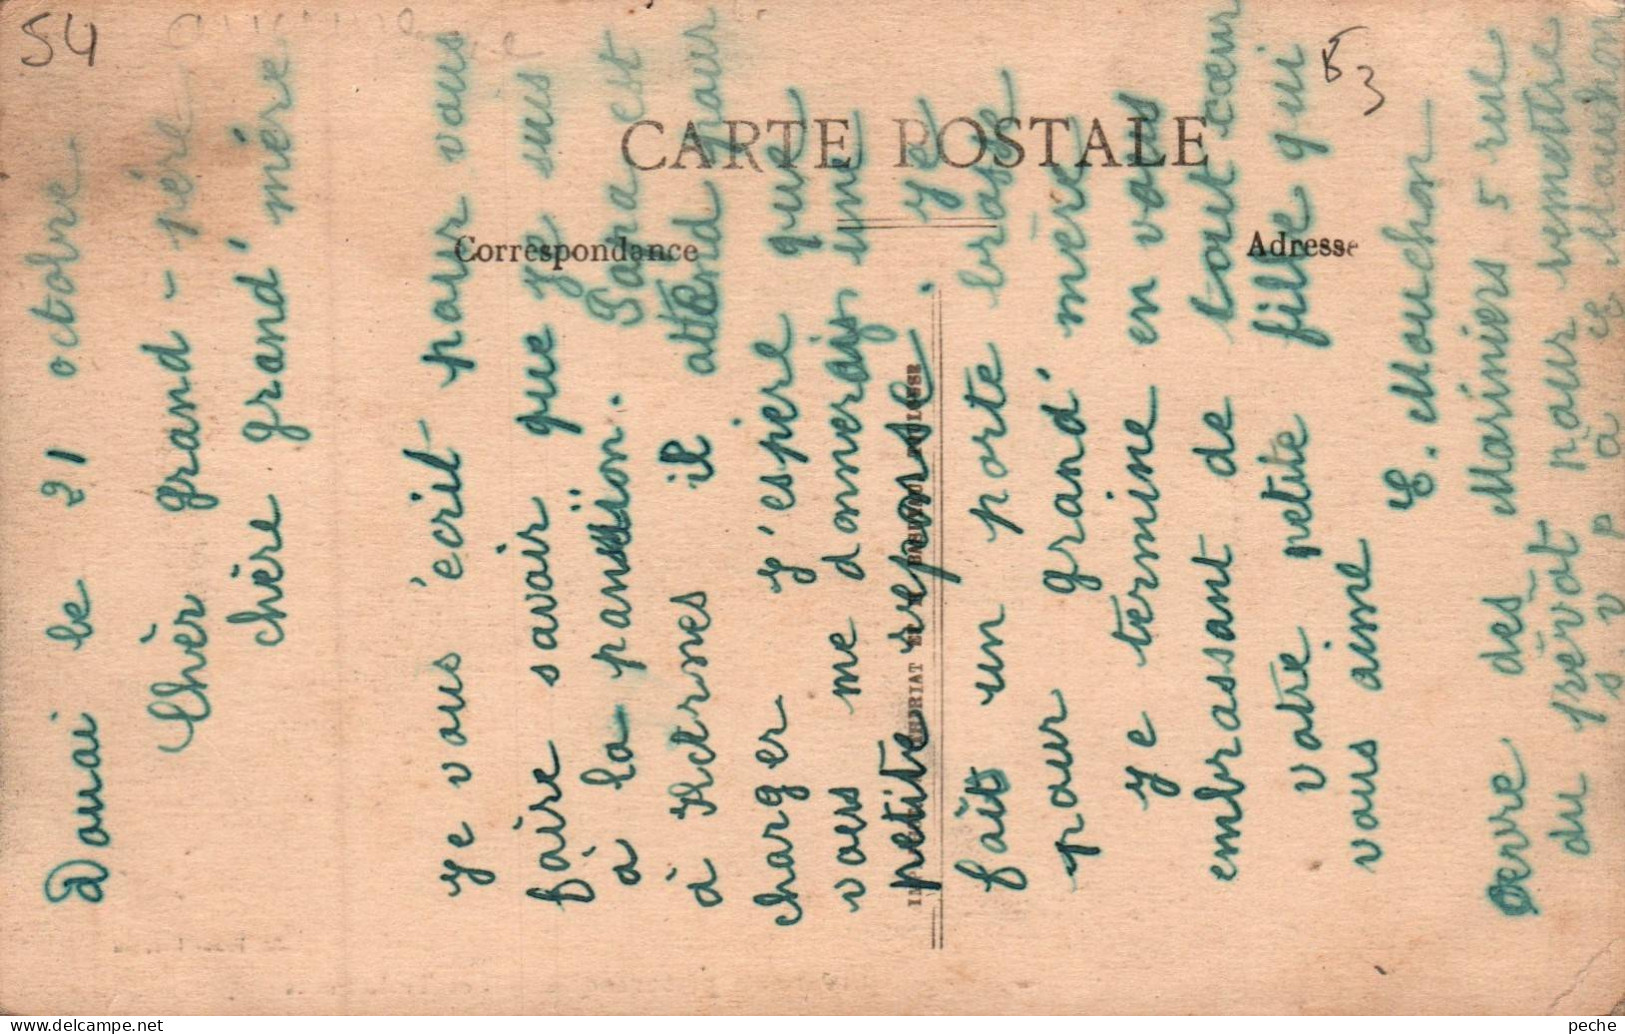 54
53
CARTE POSTALE
Correspondance
Adresse
Douai le 21 octobre
Chèr grand-père
chère grand' mère
ye vous écrit pour vous
faire savoir que ye suis
à la pansion. Papa est
à Hernes il attend pour
charger y'espère que
vous me donnerais une
petite reponse. ye
fait un porte brase
pour grand' mère
ye termine en vous
embrassant de tout cœur
votre petite fille qui
vous aime
E. Mouchon
Oevre des Mariniers 5 rue
du prévot pour remetre
s v p a E Mouchon
peche Delcampe.net